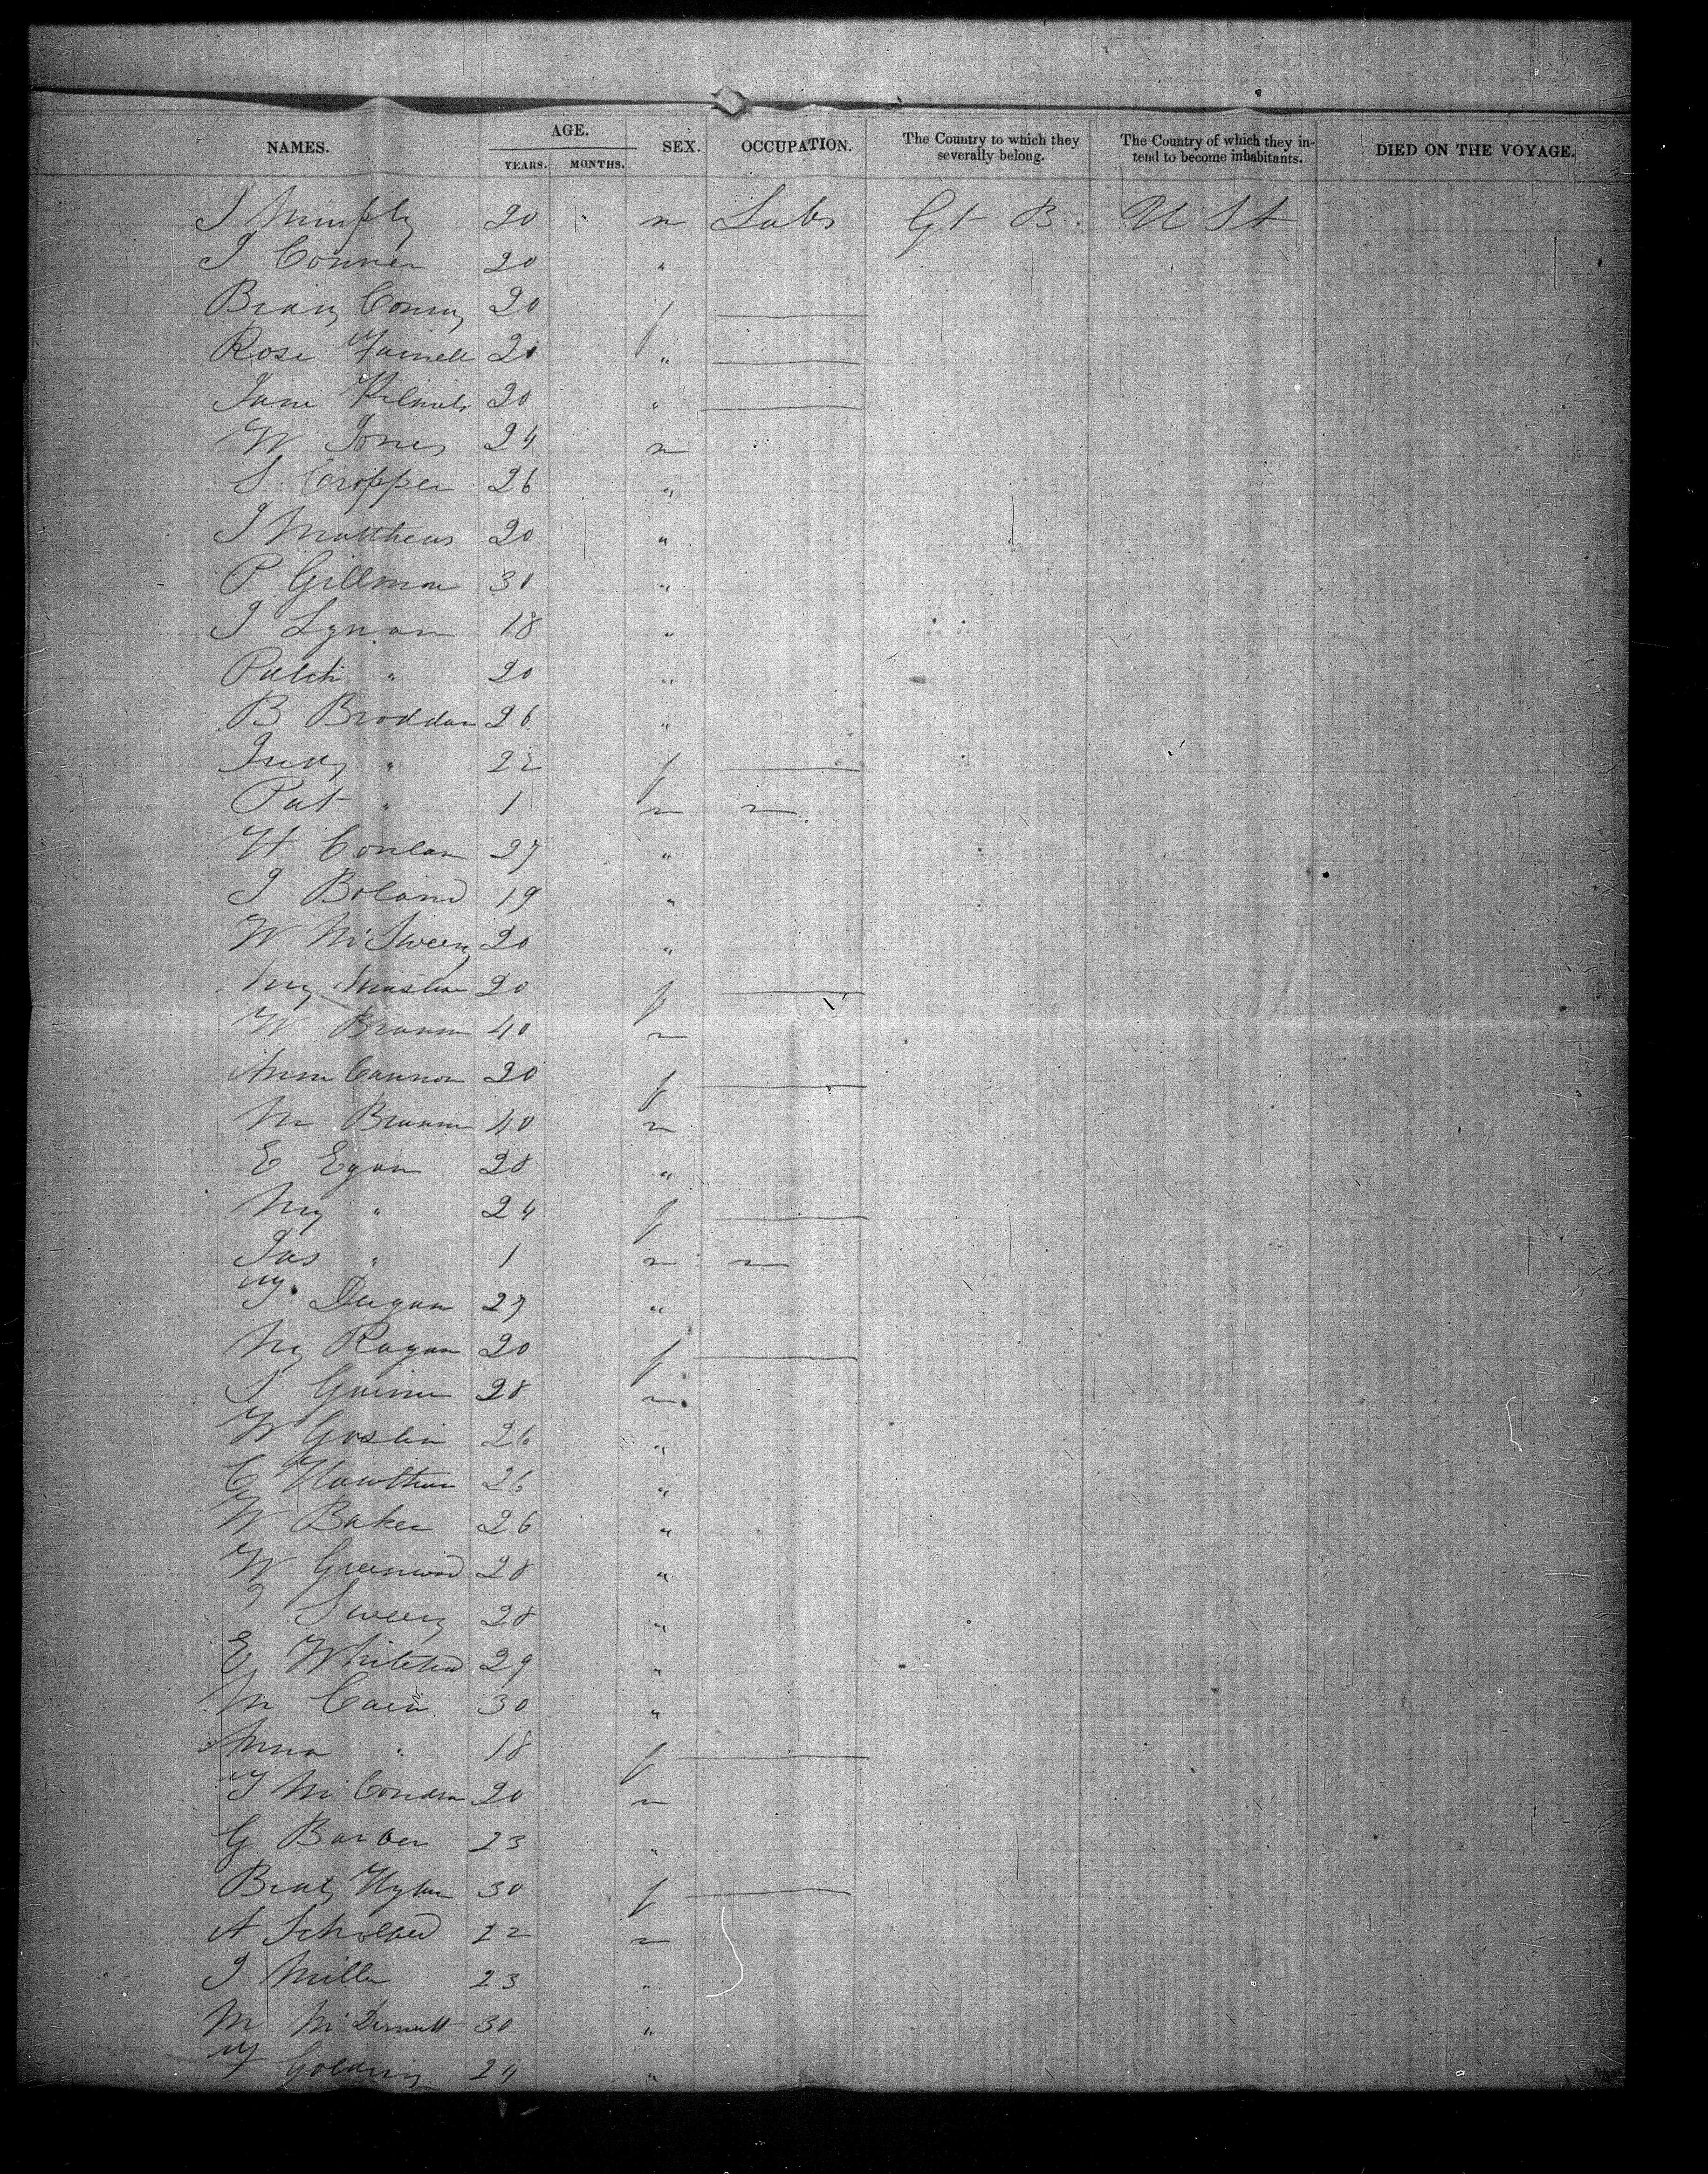 NAMES. AGE. SEX. OCCUPATION. The Country to which they severally belong. The Country of which they intend to become inhabitants. DIED ON THE VOYAGE.
YEARS. MONTHS.
J Murphy 20 " m Labr Gt B. U St
J Conner 20 "
20 f
Rose Farrell 20 "
Jane 20 "
W Jones 24 m
S. Cropper 26 "
J Matthews 20 "
P Gillman 30 "
J Lynam 18 "
Patck " 20 "
B Broddan 26 "
Judy " 22 f
Pat " 1 m
H Conlan 27 "
J Boland 19 "
W McSweeny 20 "
My 20 f
W Brann 40 m
Ann Cannon 20 f
M Brann 40 m
E Egan 28 "
My " 24 f
Jas " 1 m
T Dugan 27 "
My Ragan 20 f
28 m
W Goslin 26 "
C Hawthorn 26 "
W Baker 26 "
W Greenwood 28 "
Sweeny 28 "
E Whitehead 29 "
M Cain 30 "
Ann " 18 f
T McCondra 20 m
G Barber 23 "
Hylan 30 f
A Scholard 22 m
J Miller 23 "
M McDermott 30 "
T Golding 24 "